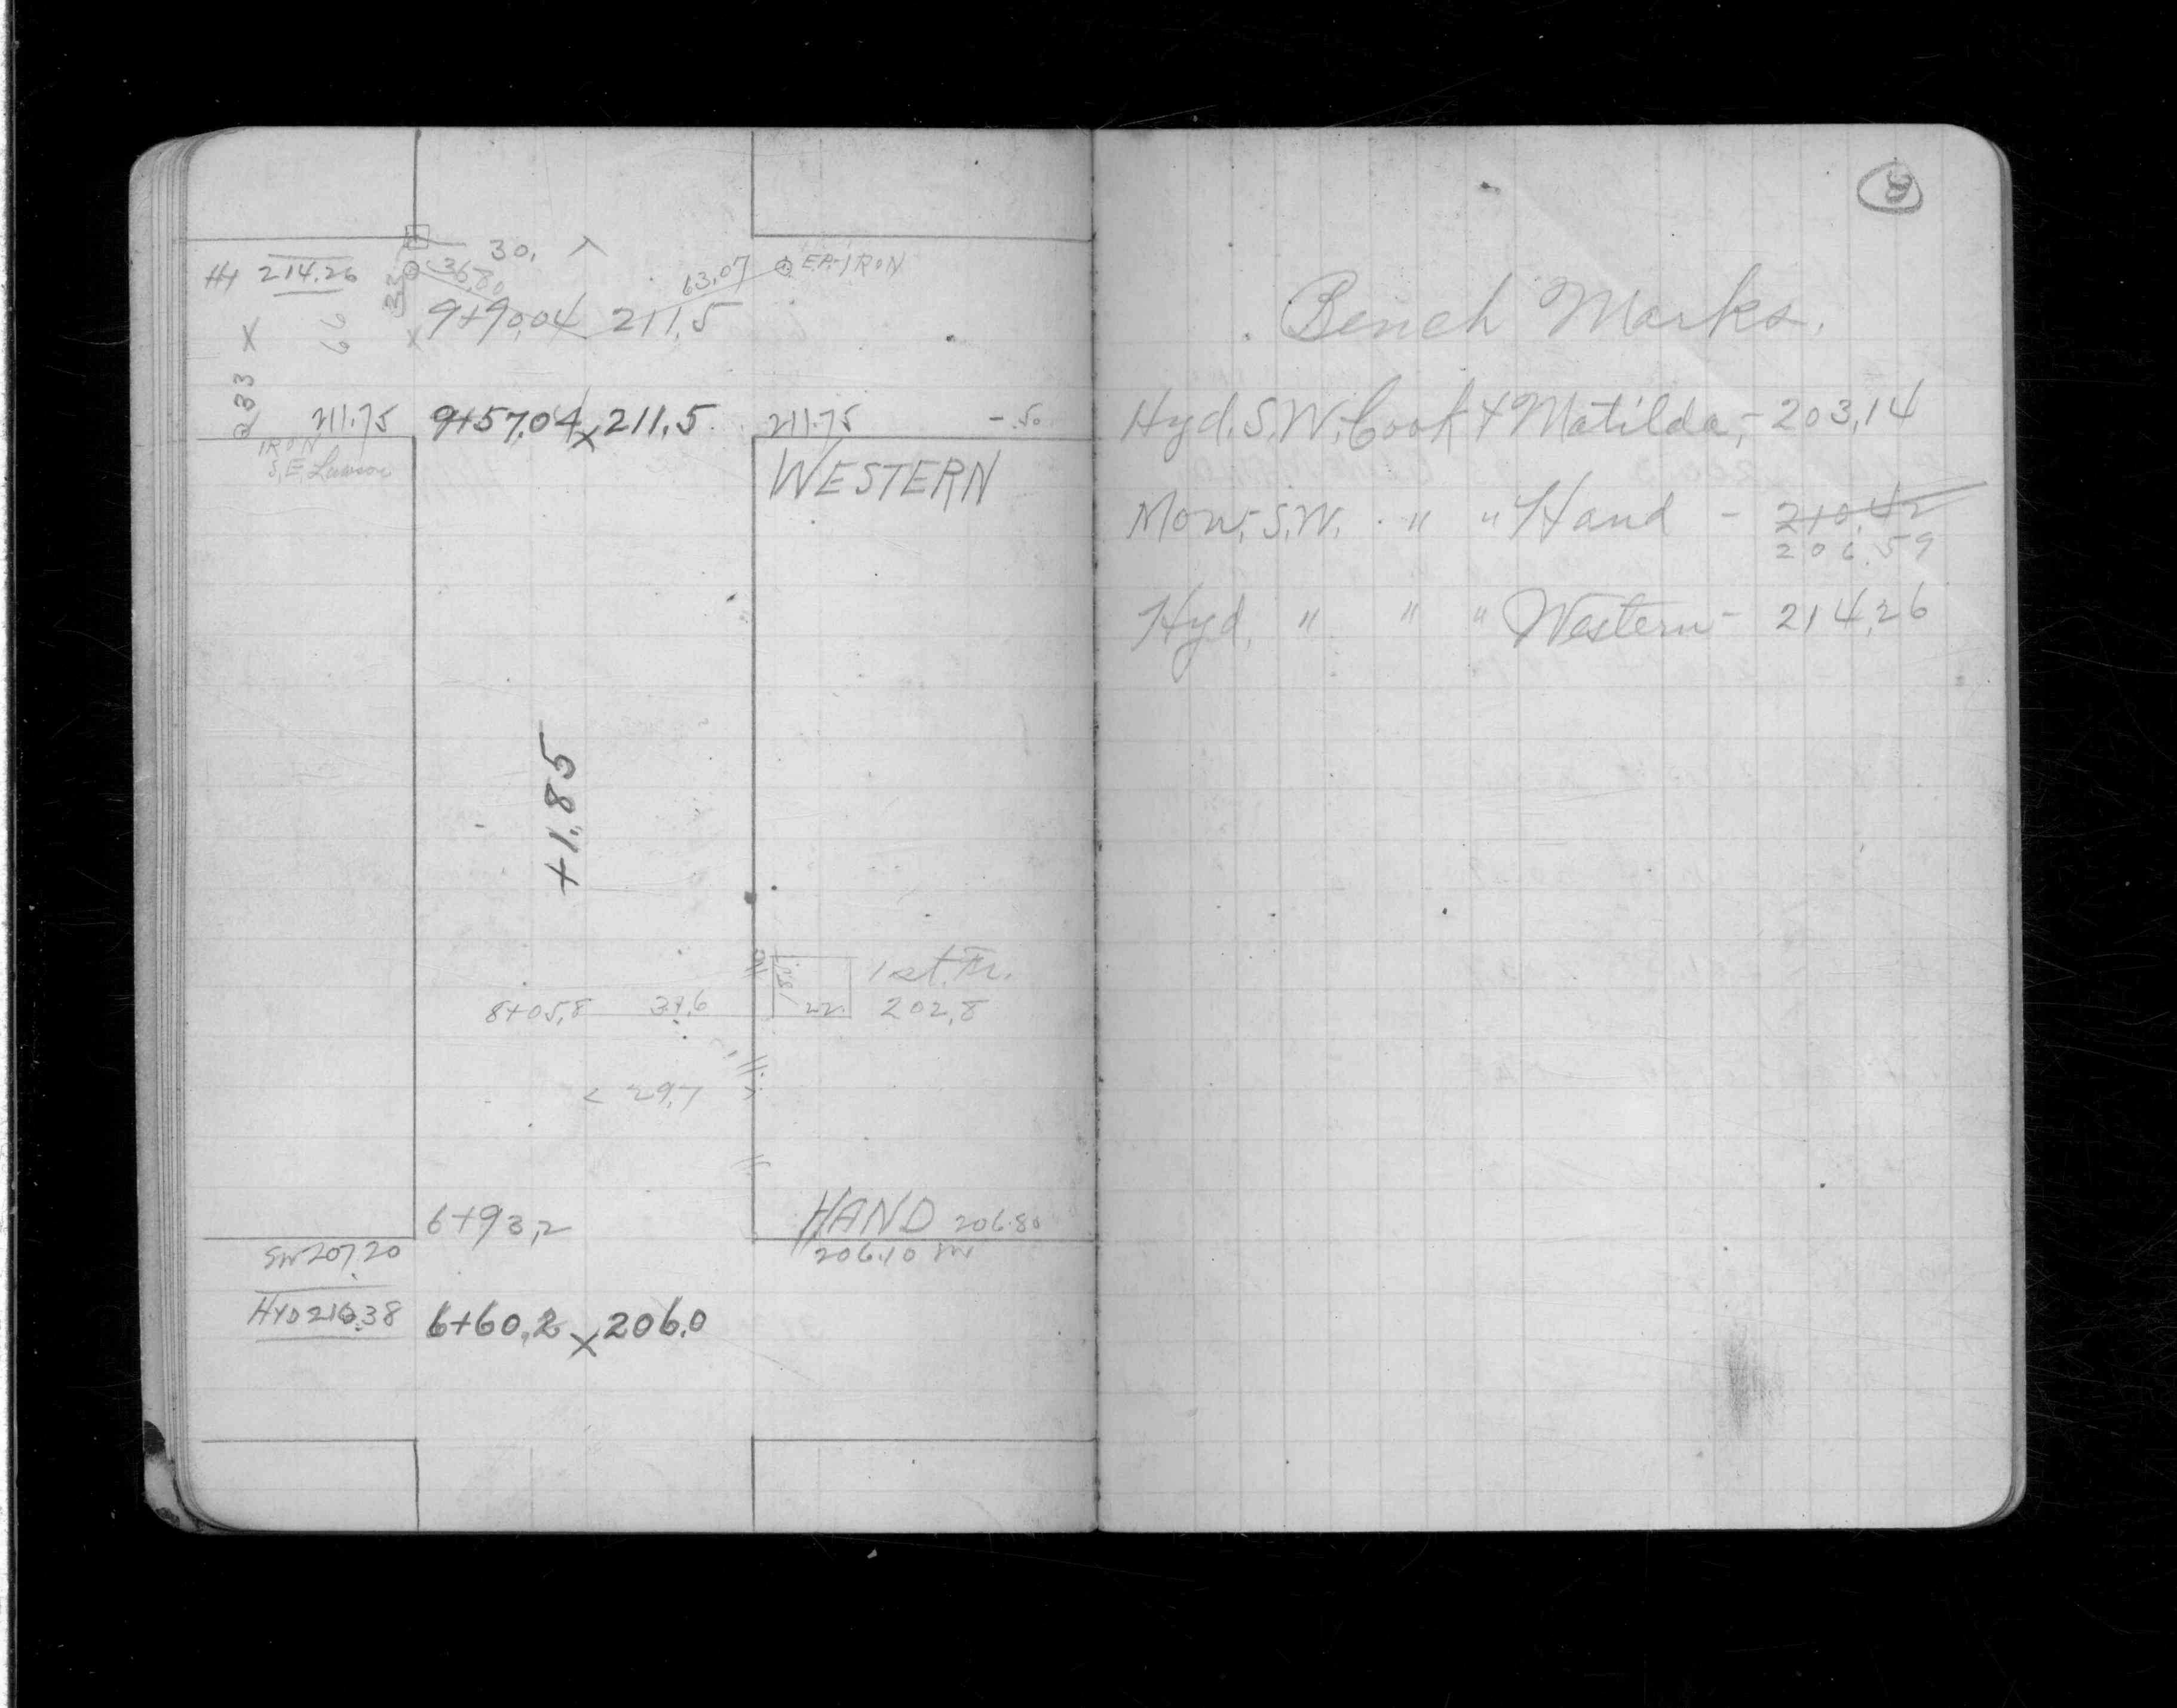 30.
H1 214.26
36.80
63.07
E.P. IRON
33
9+90.04 211.5
66
233
211.75
9+57.04 x 211.5
211.75
- .50
IRON
S.E. Lawn
WESTERN
+1.85
1st. Fr.
8+05.8
34.6
22
202.8
29.7
6+93.2
HAND 206.80
SW 207.20
206.10 SW
HYD 210.38
6+60.2 x 206.0
8
Bench Marks.
Hyd. S.W. Cook & Matilda, - 203.14
Mon. S.W. " " Hand - 210.42
206.59
Hyd. " " " Western - 214.26